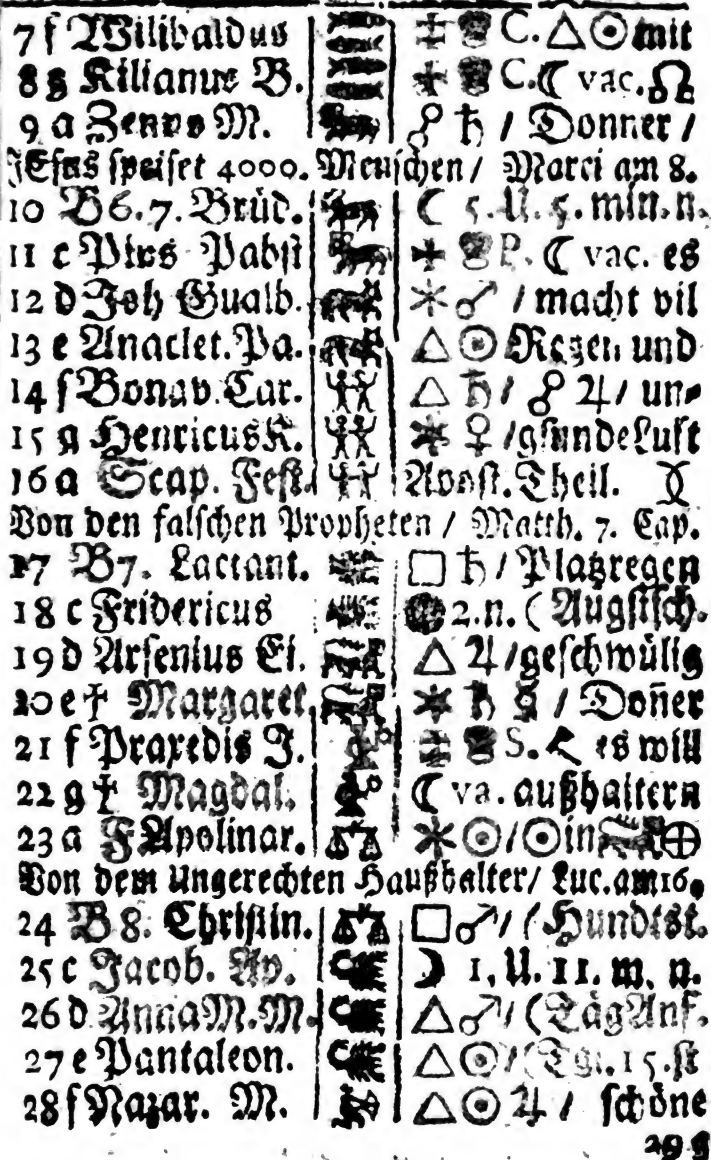 7 f Wilibaldus C. △ ☉ mit
8 g Kilianus B. C. ☾ vac. ☊
9 a Zenno M. ☍ ♄ / Donner /
JEsus speiset 4000. Menschen / Marci am 8.
10 B 6. 7. Brüd. ☾ 5. U. 5. min. n.
11 c Pius Pabst P. ☾ vac. es
12 d Joh Gualb. ⚹ ♂ / macht vil
13 e Anaclet. Pa. △ ☉ Regen und
14 f Bonav. Car. △ ♄ / ☍ ♃ / un-
15 g Henricus K. ⚹ ♀ / gsunde Luft
16 a Scap. Fest. Apost. Theil.
Von den falschen Propheten / Matth. 7. Cap.
17 B 7. Lactant. □ ♄ / Platzregen
18 c Fridericus 2. n. ( Augstsch.
19 d Arsenius Ei. △ ♃ / geschwülig
20 e † Margaret. ⚹ ♄ ☿ / Doñer
21 f Praxedis J. S. es will
22 g † Magdal. ☾ va. außhaitern
23 a F Apolinar. ⚹ ☉ / ☉ in ⊕
Von dem Ungerechten Haußhalter / Luc. am 16.
24 B 8. Christin. □ ♂ / ( Hundtst.
25 c Jacob. Ap. ☽ 1. U. 11. m. n.
26 d Anna M. M. △ ♂ / ( Täg Anf.
27 e Pantaleon. △ ☉ / ( Tgl. 15. st
28 f Nazar. M. △ ☉ ♃ / schöne
29 g